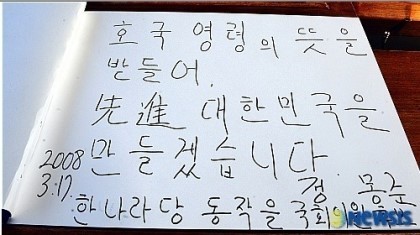 호국영령의 뜻을
받들어.
先進 대한민국을
만들겠습니다
2008
3.17. 정몽준
한나라당 동작을 국회의원
newsis